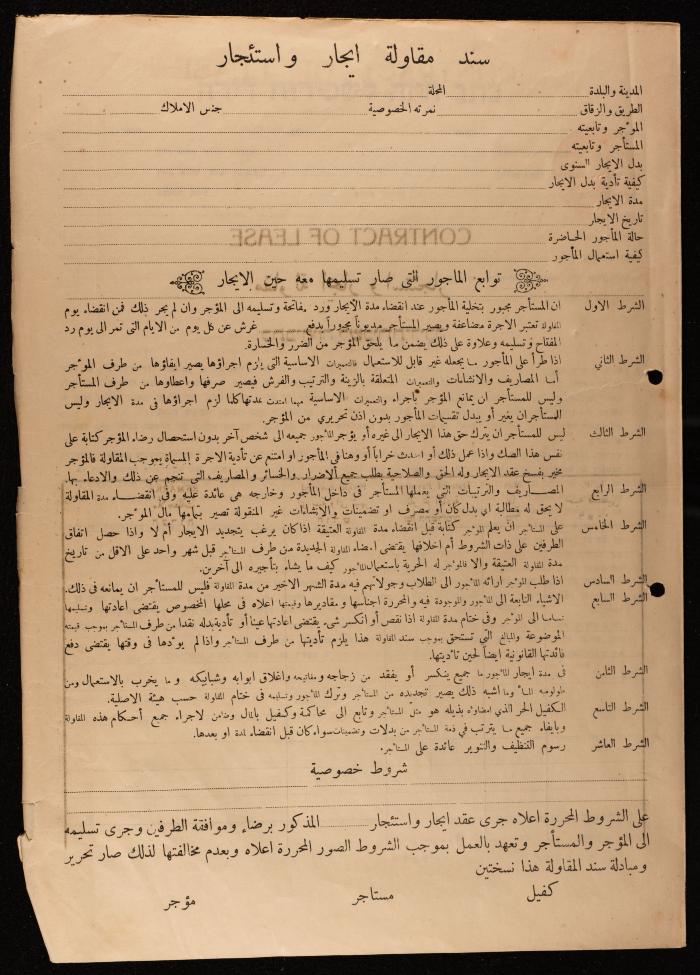 سند مقاولة ايجار واستئجار
المدينة والبلدة المحلة
الطريق والزقاق نمرته الخصوصية جنس الاملاك
المؤجر وتابعيته
المستأجر وتابعيته
بدل الايجار السنوى
كيفية تأدية بدل الايجار
مدة الايجار
تاريخ الايجار
حالة المأجور الحاضرة
كيفية استعمال المأجور
CONTRACT OF LEASE
توابع المأجور التى صار تسليمها معه حين الايجار
الشرط الاول ان المستأجر مجبور بتخلية المأجور عند انقضاء مدة الايجار ورد مفاتحة وتسليمه الى المؤجر وان لم يجر ذلك فمن انقضاء يوم
المقاولة تعتبر الاجرة مضاعفة ويصير المستأجر مديوناً مجبوراً بدفع غرش عن كل يوم من الايام التى تمر الى يوم رد
المفتاح وتسليمه وعلاوة على ذلك يضمن ما يلحق المؤجر من الضرر والخسارة.
الشرط الثاني اذا طرأ على المأجور ما يجعله غير قابل للاستعمال فالتعميرات الاساسية التى يلزم اجراؤها يصير ايفاؤها من طرف المؤجر
أما المصاريف والانشاءات والتعميرات المتعلقة بالزينة والترتيب والفرش فيصير صرفها واعطاوها من طرف المستأجر
وليس للمستأجر ان يمانع المؤجر باجراء والتعميرات الاساسية مهما امتدت عدتها كلما لزم اجراؤها فى مدة الايجار وليس
المستأجران يغير أو يبدل تقسيمات المأجور بدون اذن تحريري من المؤجر.
الشرط الثالث ليس للمستأجر ان يترك حق هذا الايجار الى غيره أو يؤجر المأجور جميعه الى شخص آخر بدون استحصال رضاء المؤجر كتابة على
نفس هذا الصك واذا عمل ذلك أو احدث خراباً أو وهنا فى المأجور او امتنع عن تأدية الاجرة المسماة بموجب المقاولة فالمؤجر
مخير بفسخ عقد الايجار وله الحق والصلاحية بطلب جميع الاضرار والخسائر والمصاريف التى تنجم عن ذلك والادعاء بها.
الشرط الرابع المصاريف والترتيبات التى يعملها المستأجر فى داخل المأجور وخارجه هى عائدة عليه وفى انقضاء مدة المقاولة
لا يحق له مطالبة اي بدل كان أو مصرف او تضمينات والانشاءات غير المنقولة تصير بتمامها مال المؤجر.
الشرط الخامس على المستاجر ان يعلم المؤجر كتابة قبل انقضاء مدة المقاولة العتيقة اذا كان يرغب بتجديد الايجار أم لا واذا حصل اتفاق
الطرفين على ذات الشروط أم اخلافها يقتضى امضاء المقاولة الجديدة من طرف المستاجر قبل شهر واحد على الاقل من تاريخ
مدة المقاولة العتيقة والا فالمؤجر له الحرية باستعمال المأجور كيف ما يشاء بتأجيره الى آخرين.
الشرط السادس اذا طلب المؤجر ارائه المأجور الى الطلاب وجولانهم فيه مدة الشهر الاخير من مدة المقاولة فليس للمستأجر ان يمانعه فى ذلك.
الشرط السابع الاشياء التابعة الى المأجور والموجودة فيه والمحررة اجناسها ومقاديرها وقيمتها اعلاه فى محلها المخصوص يقتضى اعادتها وتسليمها
تماما الى المؤجر وفى ختام مدة المقاولة اذا نقص أو انكسر شىء يقتضى اعادتها عيناً أو تأدية بدله نقدا من طرف المستأجر بموجب قيمته
الموضوعة والمبالغ التي تستحق بموجب سند المقاولة هذا يلزم تأديتها من طرف المستاجر واذا لم يؤدها فى وقتها يقتضى دفع
فائدتها القانونية ايضاً لحين تأديتها.
الشرط الثامن فى مدة ايجار المأجور ما جميع ينكسر أو يفقد من زجاجه ومفاتيحه واغلاق ابوابه وشبابيكه وما يخرب بالاستعمال ومن
طولومبه الماء وما اشبه ذلك يصير تجديده من المستاجر وترك المأجور وتسليمه فى ختام المقاولة حسب هيئته الاصلية.
الشرط التاسع الكفيل الحر الذى امضاؤه بذيله هو مثل المستاجر وتابع الى محاكمة وكفيل بالمال وضامن لاجراء جميع أحكام هذه المقاولة
وبايفاء جميع ما يترتب فى ذمة المستاجر من بدلات وتضمينات سواء كان قبل انقضاء المدة او بعدها.
الشرط العاشر رسوم التنظيف والتنوير عائدة على المستاجر.
شروط خصوصية
على الشروط المحررة اعلاه جرى عقد ايجار واستئجار المذكور برضاء وموافقة الطرفين وجرى تسليمه
الى المؤجر والمستأجر وتعهد بالعمل بموجب الشروط الصور المحررة اعلاه وبعدم مخالفتها لذلك صار تحرير
ومبادلة سند المقاولة هذا نسختين
كفيل مستاجر مؤجر